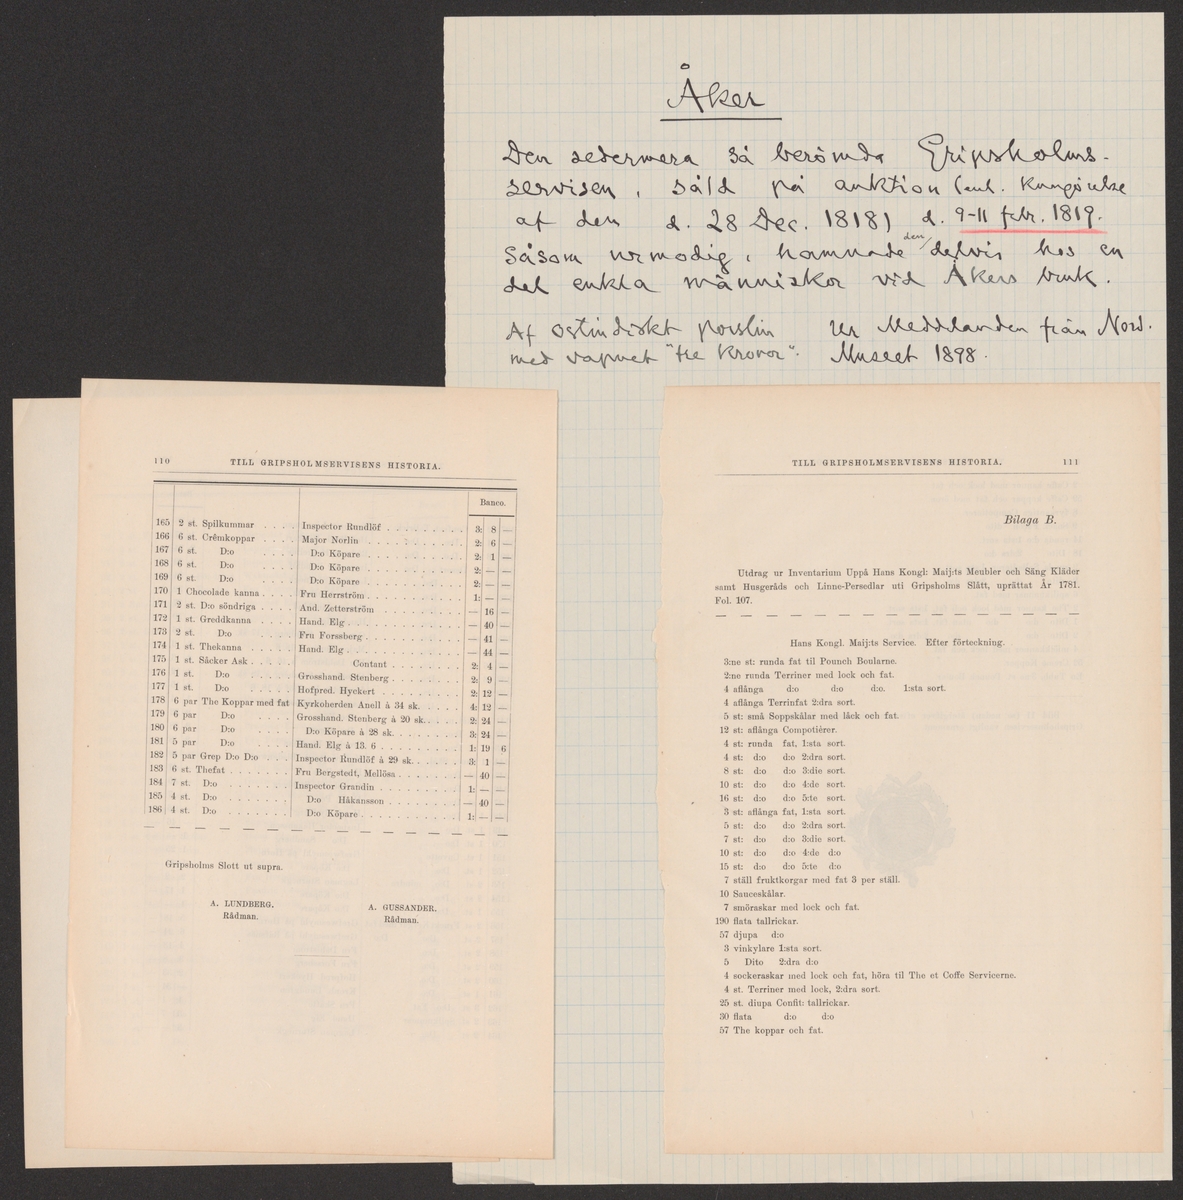 Åker
Den sedermera så berömda Gripsholms-
servisen, såld på auktion (enl. Kungörelse
af den d. 28 Dec. 1818) d. 9-11 febr. 1819.
såsom urmodig, hamnade den delvis hos en
del enkla människor vid Åkers bruk.
Af ostindiskt porslin
med vapnet "tre kronor".
Ur Meddelanden från Nord.
Museet 1898.
110 TILL GRIPSHOLMSERVISENS HISTORIA.
Banco.
165 2 st. Spilkummar . . . . Inspector Rundlöf . . . . . . . . . 3: 8 —
166 6 st. Crêmkoppar . . . Major Norlin . . . . . . . . . . . 2: 6 —
167 6 st. D:o . . . . D:o Köpare . . . . . . . . . . 2: 1 —
168 6 st. D:o . . . . D:o Köpare . . . . . . . . . . 2: — —
169 6 st. D:o . . . . D:o Köpare . . . . . . . . . . 2: — —
170 1 Chocolade kanna . . . . Fru Herrström . . . . . . . . . . 1: — —
171 2 st. D:o söndriga . . . . And. Zetterström . . . . . . . . . — 16 —
172 1 st. Greddkanna . . . . Hand. Elg . . . . . . . . . . . . — 40 —
173 2 st. D:o . . . . Fru Forssberg . . . . . . . . . . — 41 —
174 1 st. Thekanna . . . . Hand. Elg . . . . . . . . . . . . — 44 —
175 1 st. Såcker Ask . . . . . Contant . . . . . . . . 2: 4 —
176 1 st. D:o . . . . . Grosshand. Stenberg . . . . . . . . 2: 9 —
177 1 st. D:o . . . . . Hofpred. Hyckert . . . . . . . . . 2: 12 —
178 6 par The Koppar med fat Kyrkoherden Anell à 34 sk. . . . . . 4: 12 —
179 6 par D:o . . . . Grosshand. Stenberg à 20 sk. . . . . 2: 24 —
180 6 par D:o . . . . D:o Köpare à 28 sk. . . . . . . 3: 24 —
181 5 par D:o . . . . Hand. Elg à 13. 6 . . . . . . . . . 1: 19 6
182 5 par Grep D:o D:o . . . Inspector Rundlöf à 29 sk. . . . . . 3: 1 —
183 6 st. Thefat . . . . . . . Fru Bergstedt, Mellösa . . . . . . . — 40 —
184 7 st. D:o . . . . . . . Inspector Grandin . . . . . . . . . 1: — —
185 4 st. D:o . . . . . . . D:o Håkansson . . . . . . . . — 40 —
186 4 st. D:o . . . . . . . D:o Köpare . . . . . . . . . . 1: — —
Gripsholms Slott ut supra.
A. LUNDBERG. A. GUSSANDER.
Rådman. Rådman.
TILL GRIPSHOLMSERVISENS HISTORIA. 111
Bilaga B.
Utdrag ur Inventarium Uppå Hans Kongl: Maij:ts Meubler och Säng Kläder
samt Husgeråds och Linne-Persedlar uti Gripsholms Slått, uprättat År 1781.
Fol. 107.
Hans Kongl. Maij:ts Service. Efter förteckning.
3:ne st: runda fat til Pounch Boularne.
2:ne runda Terriner med lock och fat.
4 aflånga d:o d:o d:o. 1:sta sort.
4 aflånga Terrinfat 2:dra sort.
5 st: små Soppskålar med låck och fat.
12 st: aflånga Compotiérer.
4 st: runda fat, 1:sta sort.
4 st: d:o d:o 2:dra sort.
8 st: d:o d:o 3:die sort.
10 st: d:o d:o 4:de sort.
16 st: d:o d:o 5:te sort.
3 st: aflånga fat, 1:sta sort.
5 st: d:o d:o 2:dra sort.
7 st: d:o d:o 3:die sort.
10 st: d:o d:o 4:de d:o
15 st: d:o d:o 5:te d:o
7 ställ fruktkorgar med fat 3 per ställ.
10 Sauceskålar.
7 smöraskar med lock och fat.
190 flata tallrickar.
57 djupa d:o
3 vinkylare 1:sta sort.
5 Dito 2:dra d:o
4 sockeraskar med lock och fat, höra til The et Coffe Servicerne.
4 st. Terriner med lock, 2:dra sort.
25 st. diupa Confit: tallrickar.
30 flata d:o d:o
57 The koppar och fat.